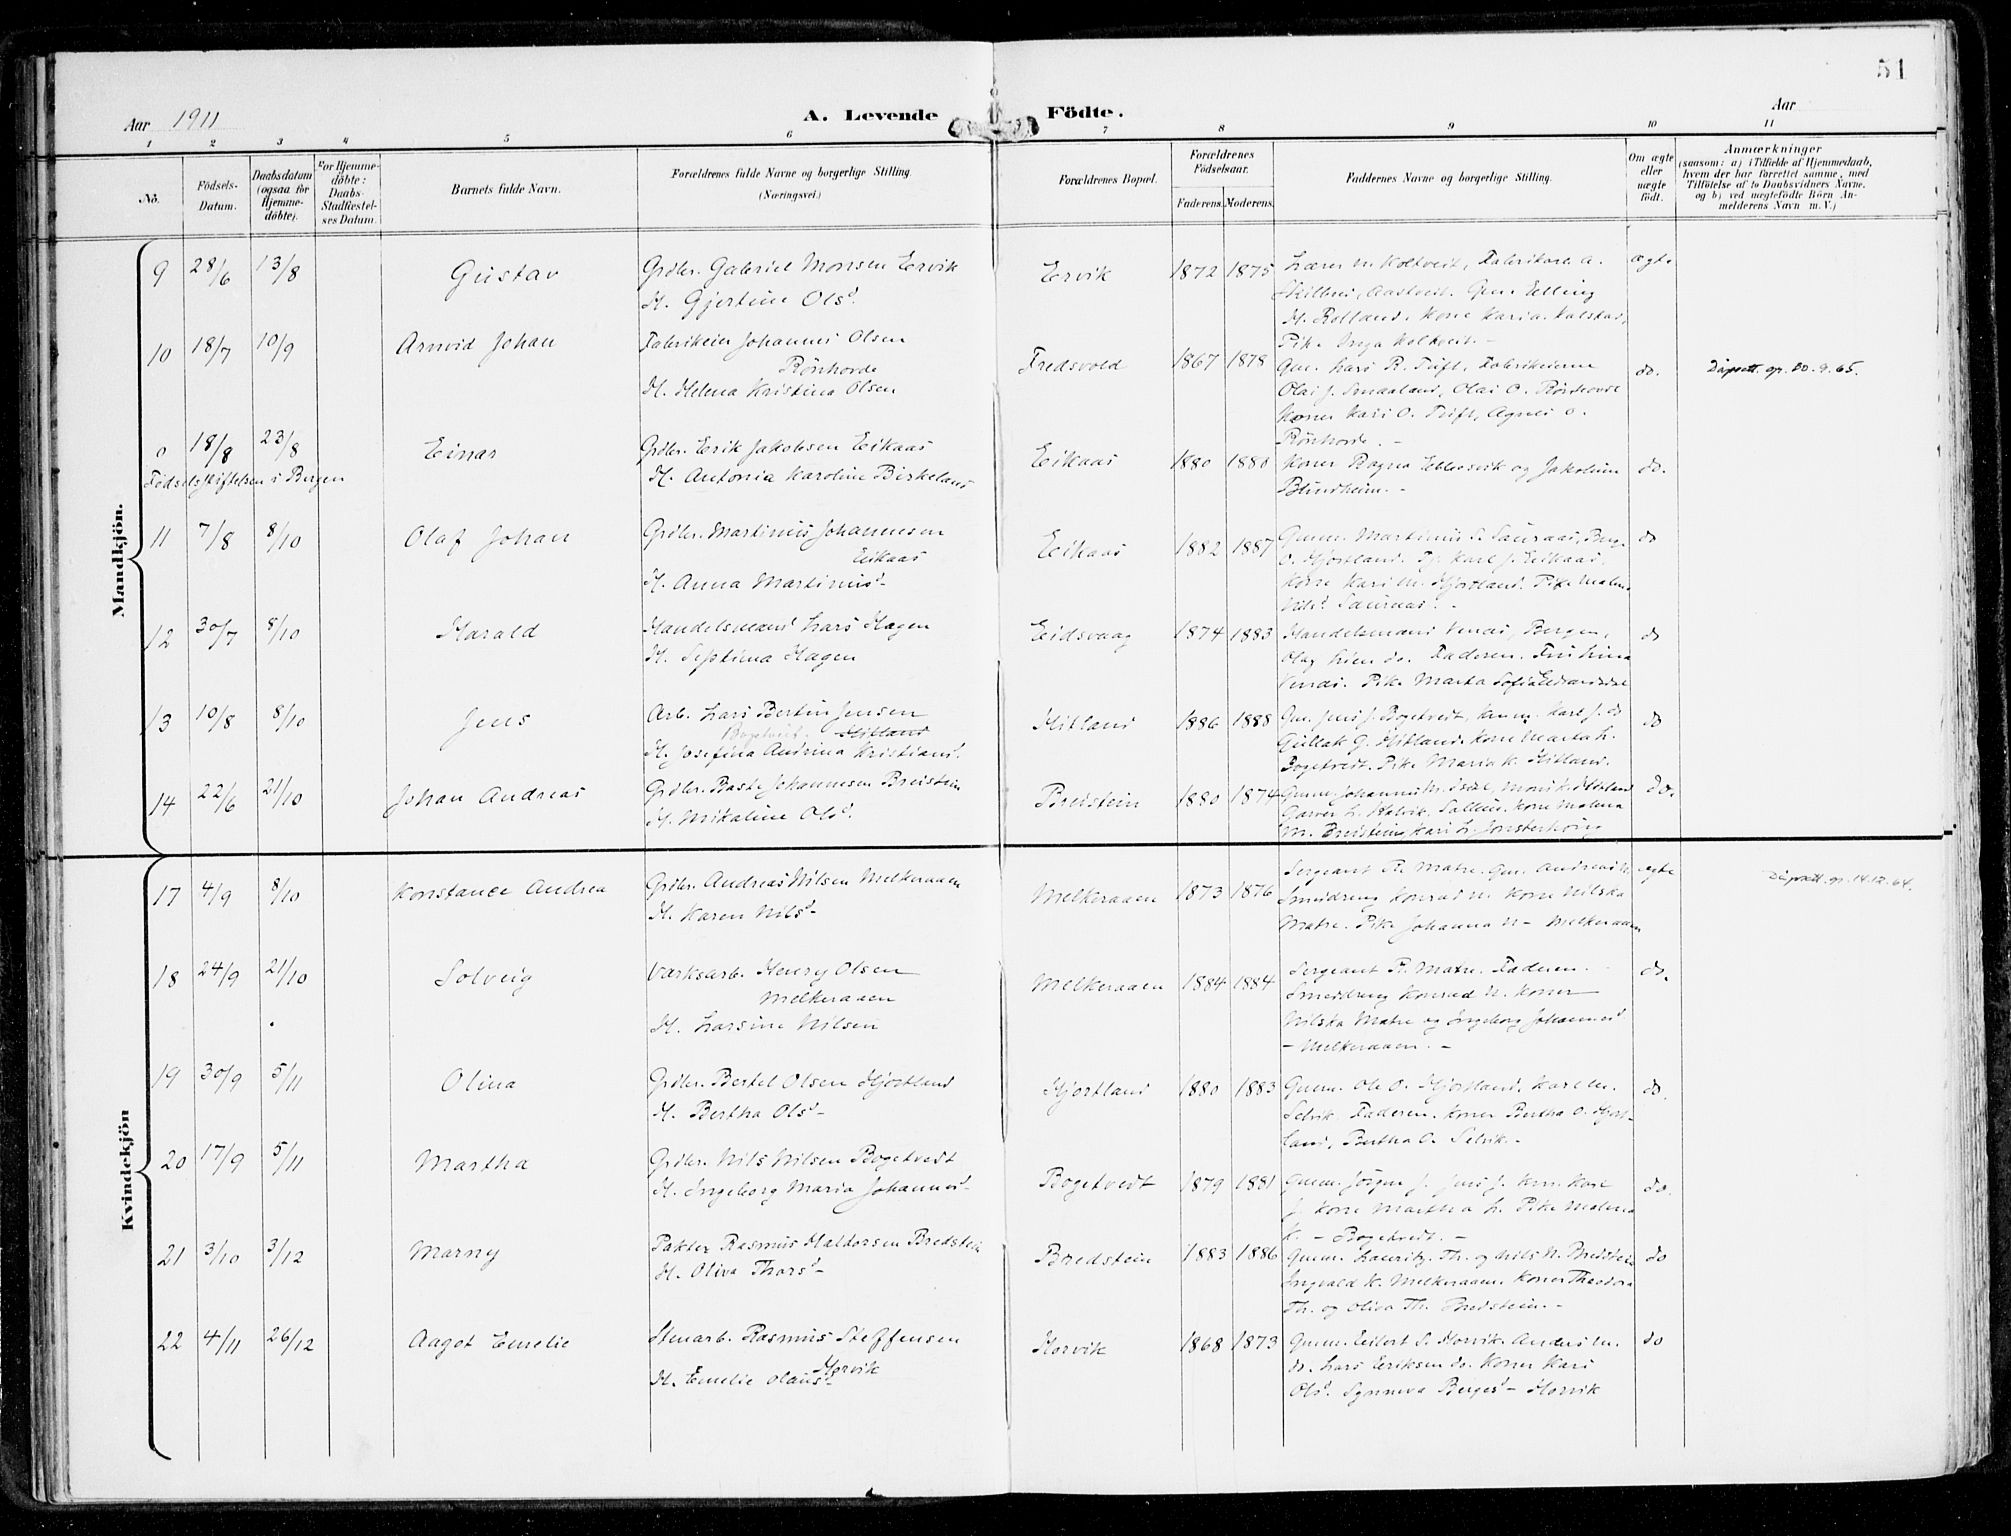 51
Aar 1911
A. Levende Födte.
Aar
1 2 3 4 5 6 7 8 9 10 11
No.
Födsels-Datum.
Daabsdatum (ogsaa for Hjemme-döbte).
For Hjemme-döbte: Daabs-Stadfæstel-ses Datum.
Barnets fulde Navn.
Forældrenes fulde Navne og borgerlige Stilling.
(Næringsvei.)
Forældrenes Bopæl.
Forældrenes Födselsaar.
Faderens. Moderens.
Faddernes Navne og borgerlige Stilling.
Om ægte eller uægte födt.
Anmærkninger
(saasom: a) i Tilfælde af Hjemmedaab,
hvem der har forrettet samme, med
Tilföielse af to Daabsvidners Navne.
og b) ved uægtefödte Börn An-
melderens Navn m. V.)
Mandkjön.
9 28/6 13/8 Gustav
Grdbr. Gabriel Monsen Ervik
H. Gjertine Olsd.
Ervik 1872 1875
Lærer M. Koltveit, Fabrikarb. A.
H. Rolland. Kone Karia Kalstad,
Pike Inga Koltveit. -
ægte
10 18/7 10/9 Arnvid Johan
Fabrikeier Johannes Olsen
Rönhovde
H. Helena Kristina Olsen
Fredsvold 1867 1878
Gm. Lars R. Tuft, Fabrikeierne
Olai J. Smaaland, Olai O. Rönhovde
Koner Kari O. Tuft, Agnes O.
Rönhovde. -
do.
20.9.65.
o 18/8 23/8 Einar
Födselsstiftelsen i Bergen
Grdbr. Erik Jakobsen Eikaas
H. Antonia Karoline Birkeland
Eikaas 1880 1880
Koner Ragna Ellensvik og Jakobine
Blindheim. -
do.
11 7/8 8/10 Olaf Johan
Grdbr. Martinus Johannesen
Eikaas
H. Anna Martinusd-
Eikaas 1882 1887
Gmm. Martinus S. Sauraas, Berge
O. Hjortland. Uj. Karl J. Eikaas.
Kone Kari M. Hjortland. Pike Malene
Nilsd. Sauraas. -
do
12 30/7 8/10 Harald
Handelsmand Lars Hagen
H. Septima Hagen
Eidsvaag 1874 1883
Handelsmand Venås, Bergen,
Olaf Lien do. Faderen. Fru Lina
Venås. Pike Marta Sofie
do
13 10/8 8/10 Jens
Arb. Lars Bertin Jensen
Bogetveit. Hitland
H. Josefina Andrina Kristiansd.
Hitland 1886 1888
Gm. Jens J. Bogetvedt, Karl J. do
Gullak G. Hitland. Kone Marta L.
Bogetvedt. Pike Maria K. Hitland.
do
14 22/6 21/10 Johan Andreas
Grdbr. Baste Johannesen Breistein
H. Mikaline Olsd.
Breistein 1880 1874
Gmm. Johannes M. Isdal, Mons
Garver L. Kone Malena
M. Breistein, Kari L.
do.
Kvindekjön
17 4/9 8/10 Konstance Andrea
Grdbr. Andreas Nilsen Melkeraaen
H. Karen Nilsd-
Melkeraaen 1873 1876
Sergeant R. Matre. Gm. Andreas N.
Smeddreng Konrad N. Kone Nilska
Matre. Pike Johanna N - Melkeraaen
ægte
14.12.64.
18 24/9 21/10 Solveig
Værksarb. Henry Olsen
Melkeraaen
H. Larsine Nilsen
Melkeraaen 1884 1884
Sergeant R. Matre. Faderen.
Smeddreng Konrad N. Koner
Nilska Matre og Ingeborg Johannesd
- Melkeraaen. -
do.
19 30/9 5/11 Olina
Grdbr. Bertel Olsen Hjortland
H. Bertha Olsd-
Hjortland 1880 1883
Gmm. Ole O. Hjortland, Karl M.
Selvik. Faderen. Koner Bertha O. Hjort-
land, Bertha O. Selvik. -
do.
20 17/9 5/11 Martha
Grdbr. Nils Nilsen Bogetvedt
H. Ingeborg Maria Johannesd-
Bogetvedt 1879 1881
Gmm. Jörgen J. Jens J. Karl
J. Kone Martha L. Pike Malena
K. - Bogetvedt. -
do.
21 3/10 3/12 Marny
Pakter Rasmus Haldorsen Bredstein
H. Oliva Thorsd-
Bredstein 1883 1886
Gmm. Lauritz Th. og Nils N. Bredstein
Ingvald K. Melkeraaen. Koner Theodora
Th. og Oliva Th. Bredstein. -
do
22 4/11 26/12 Aagot Emelie
Stenarb. Rasmus Steffensen
Horvik
H. Emelie Olausd-
Horvik 1868 1873
Gmm. Eilert S. Horvik. Anders M.
do. Lars Eriksen do. Koner Kari
Olsd. Synneva Bergesd - Horvik
do